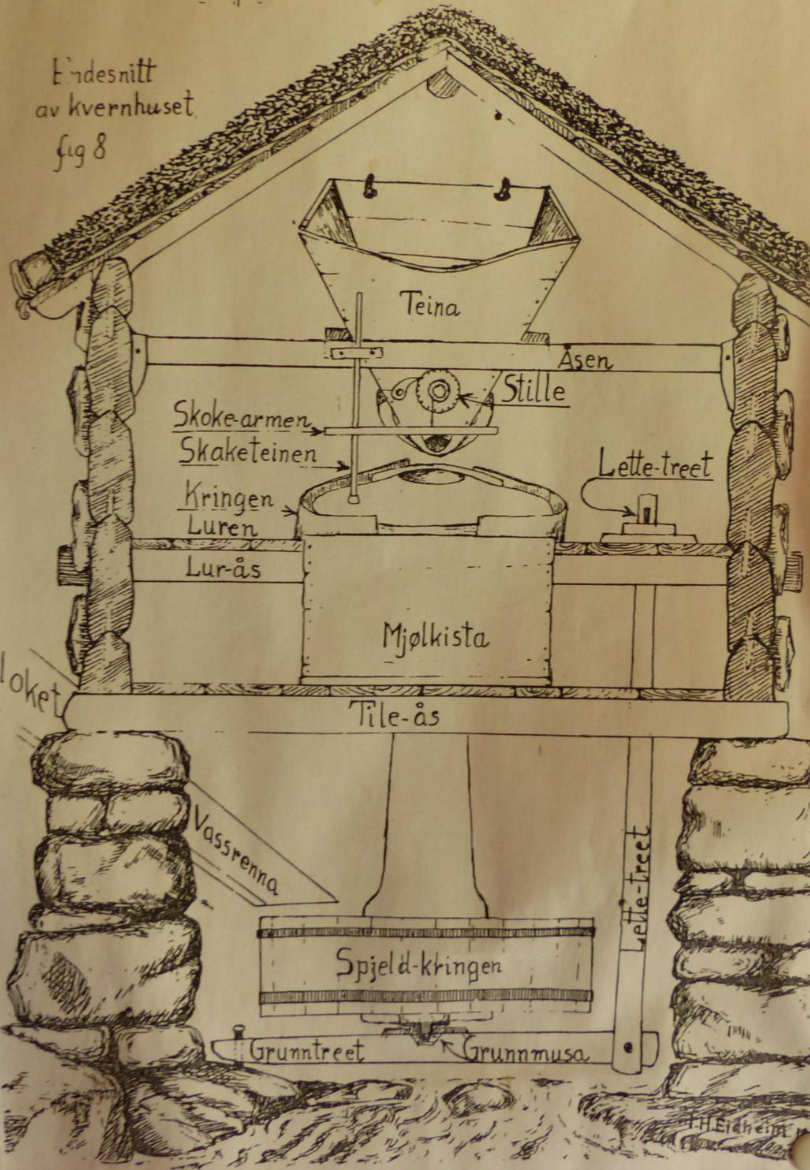 Endesnitt
av kvernhuset
fig 8
Teina
Åsen
Stille
Skoke-armen
Skaketeinen
Lette-treet
Kringen
Luren
Lur-ås
Mjølkista
loket
Tile-ås
Vassrenna
Lette-treet
Spjeld-kringen
Grunntreet
Grunnmusa
H Eidheim